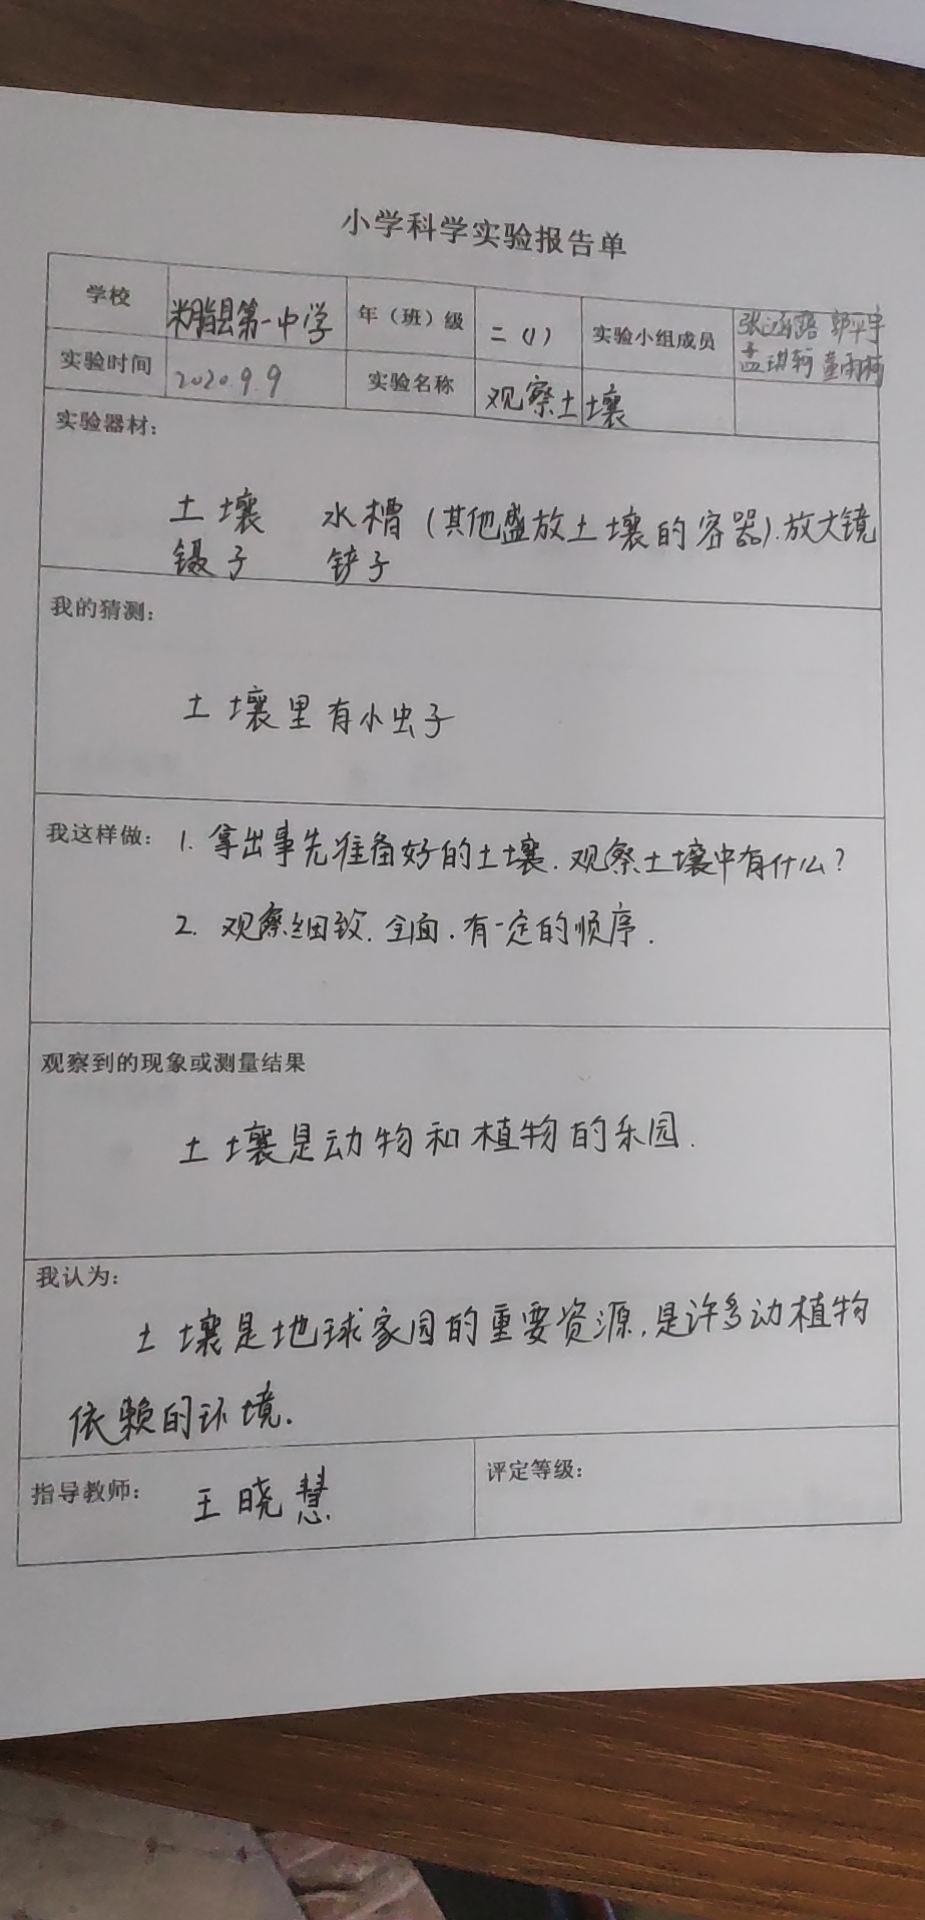 小学科学实验报告单
学校 米脂县第一中学 年（班）级 二（1） 实验小组成员 郭平宇
孟琪轲 董雨柯
实验时间 2020.9.9 实验名称 观察土壤
实验器材：
土壤 水槽（其他盛放土壤的容器）.放大镜
镊子 铲子
我的猜测：
土壤里有小虫子
我这样做： 1. 拿出事先准备好的土壤.观察土壤中有什么？
2. 观察细致.全面.有一定的顺序.
观察到的现象或测量结果
土壤是动物和植物的乐园.
我认为：
土壤是地球家园的重要资源.是许多动植物
依赖的环境.
指导教师： 王晓慧 评定等级：